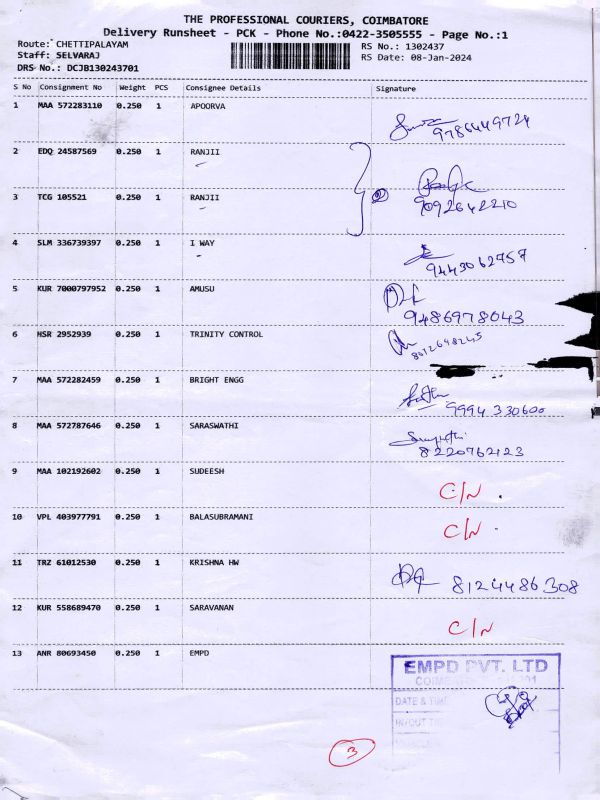 THE PROFESSIONAL COURIERS, COIMBATORE
Delivery Runsheet - PCK - Phone No.:0422-3505555 - Page No.:1
Route: CHETTIPALAYAM
Staff: SELVARAJ
DRS No.: DCJB130243701
RS No.: 1302437
RS Date: 08-Jan-2024
S No Consignment No Weight PCS Consignee Details Signature
1 MAA 572283110 0.250 1 APOORVA
9786449724
2 EDQ 24587569 0.250 1 RANJII
3 TCG 105521 0.250 1 RANJII
9092642210
4 SLM 336739397 0.250 1 I WAY
9443062757
5 KUR 7000797952 0.250 1 AMUSU
9486978043
6 HSR 2952939 0.250 1 TRINITY CONTROL
8012698245
7 MAA 572282459 0.250 1 BRIGHT ENGG
9994330600
8 MAA 572787646 0.250 1 SARASWATHI
8220762123
9 MAA 102192602 0.250 1 SUDEESH
C/N
10 VPL 403977791 0.250 1 BALASUBRAMANI
C/N
11 TRZ 61012530 0.250 1 KRISHNA HW
8124486308
12 KUR 558689470 0.250 1 SARAVANAN
C/N
13 ANR 80693450 0.250 1 EMPD
EMPD PVT. LTD
DATE & TIME
3